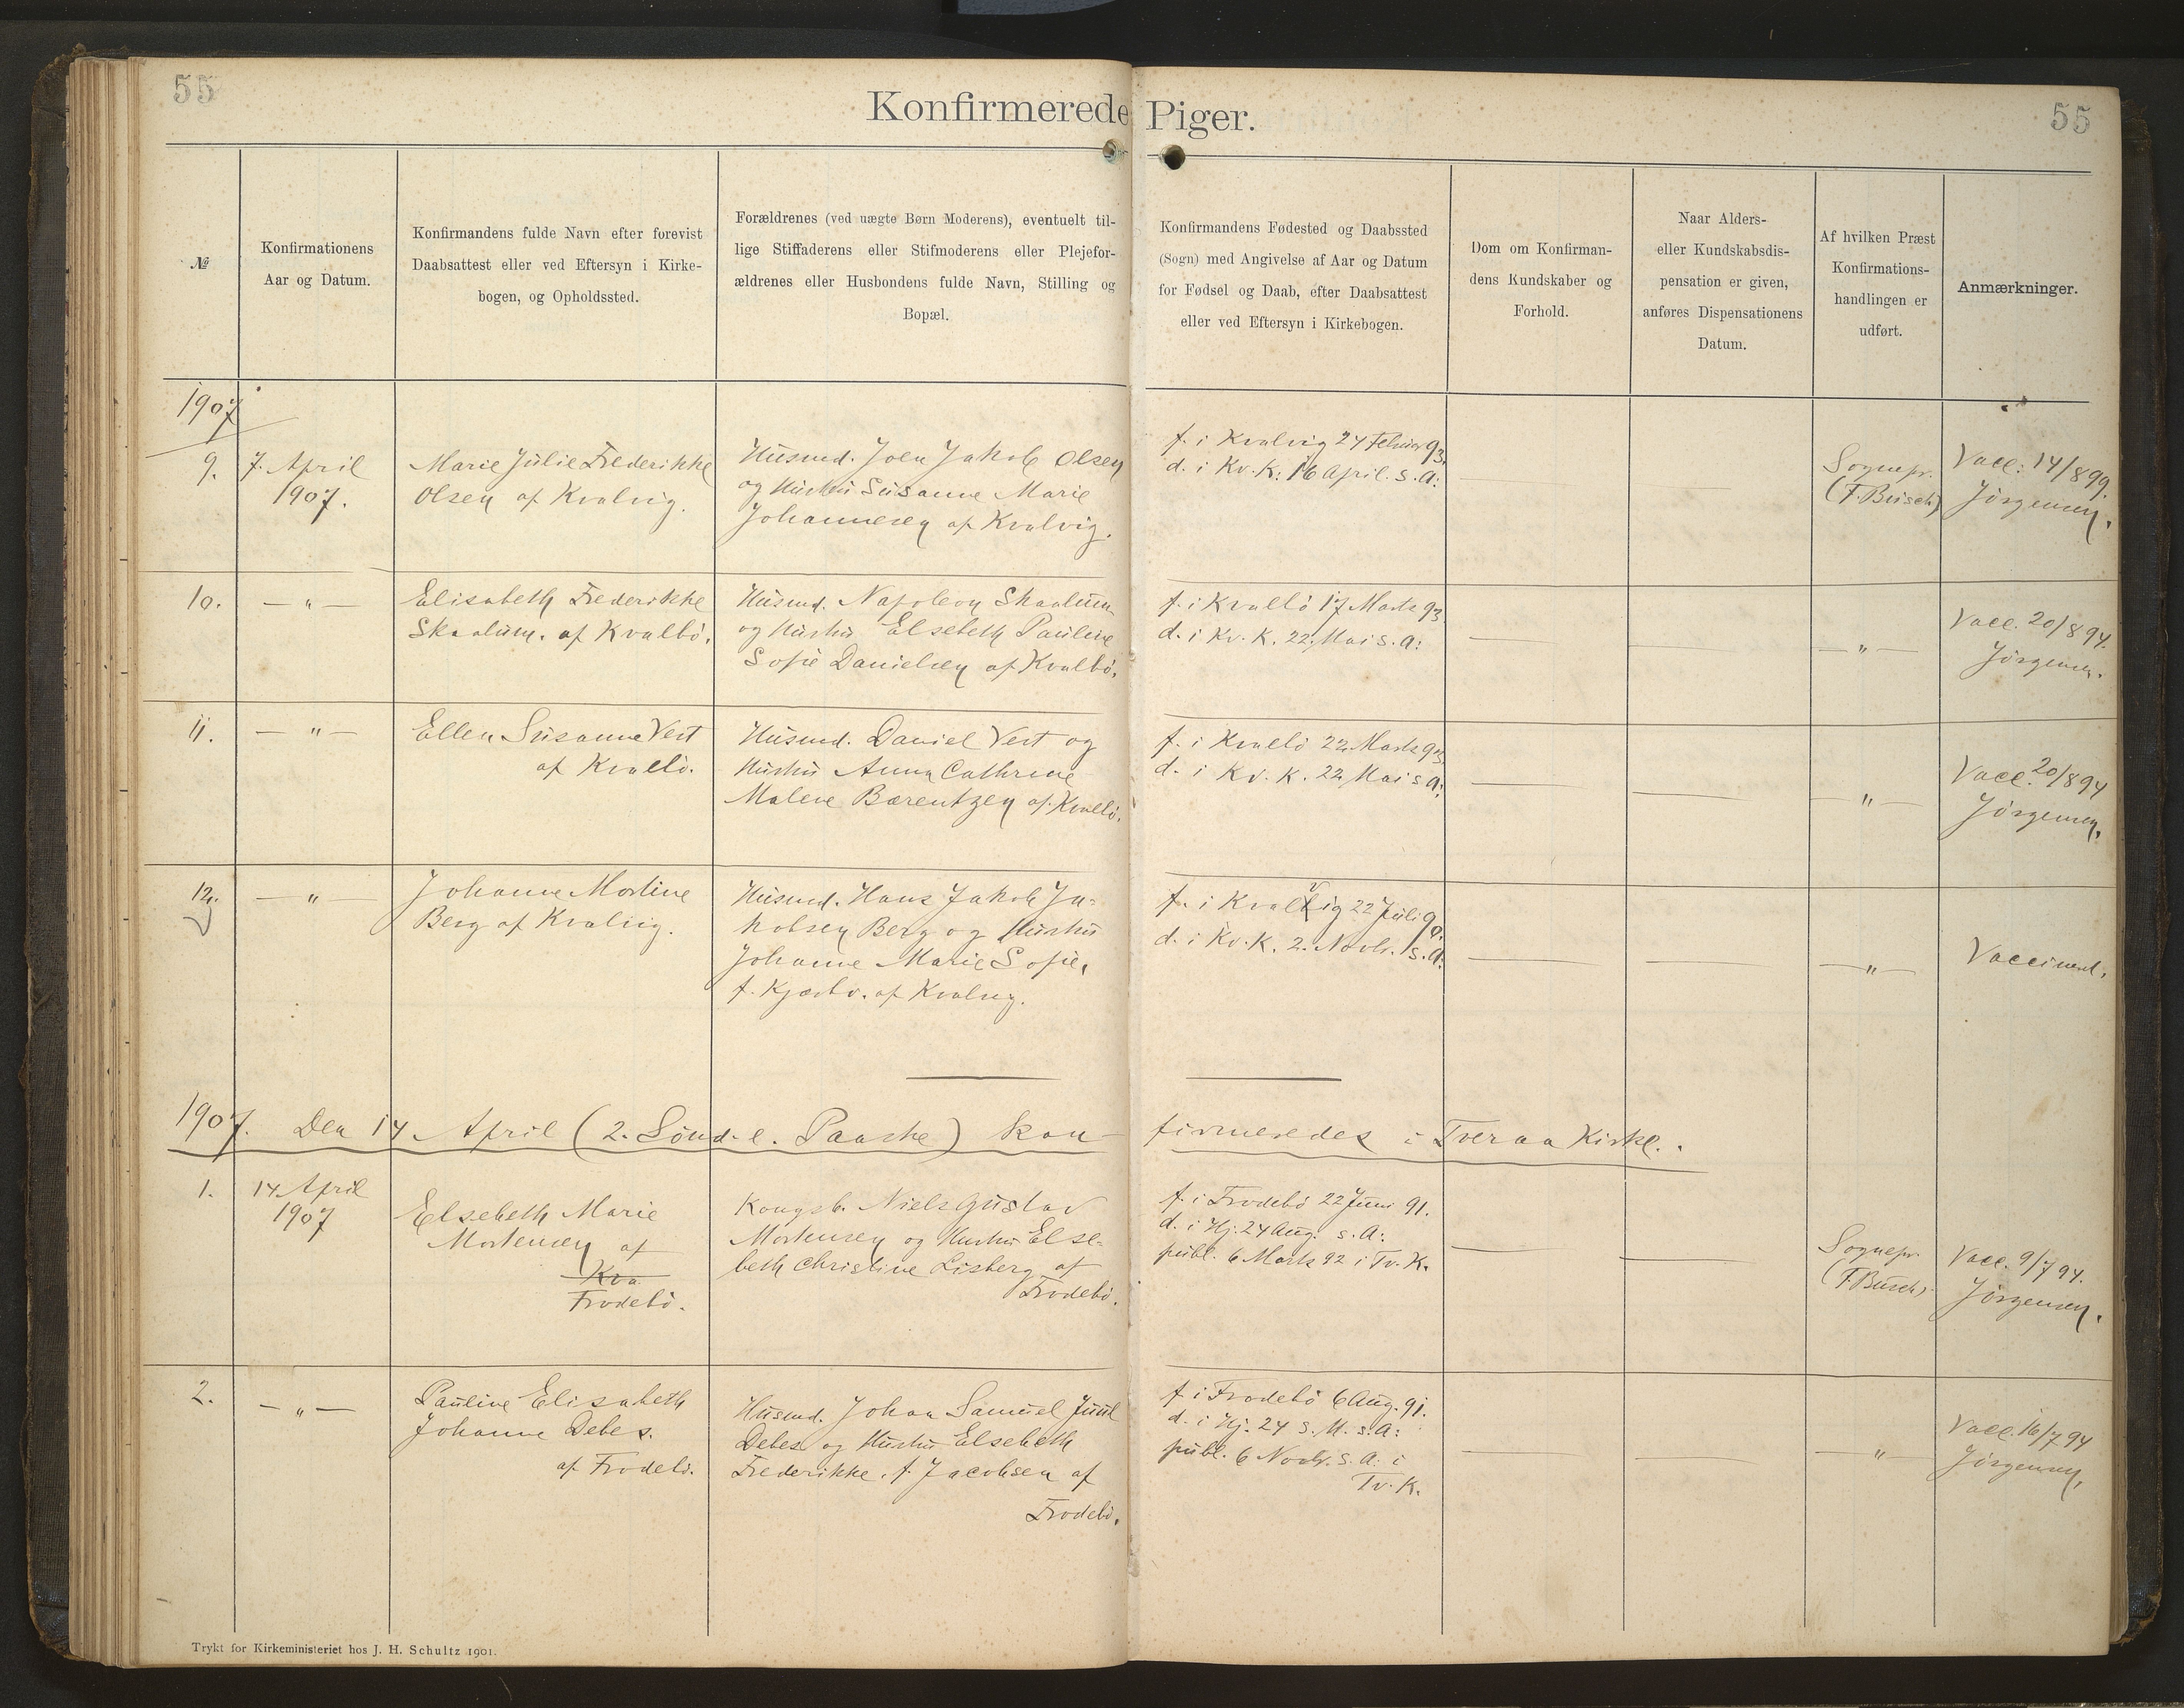 55
Konfirmerede Piger.
55
№
Konfirmationens
Aar og Datum.
Konfirmandens fulde Navn efter forevist
Daabsattest eller ved Eftersyn i Kirke-
bogen, og Opholdssted.
Forældrenes (ved uægte Børn Moderens), eventuelt til-
lige Stiffaderens eller Stifmoderens eller Plejefor-
ældrenes eller Husbondens fulde Navn, Stilling og
Bopæl.
Konfirmandens Fødested og Daabssted
(Sogn) med Angivelse af Aar og Datum
for Fødsel og Daab, efter Daabsattest
eller ved Eftersyn i Kirkebogen.
Dom om Konfirman-
dens Kundskaber og
Forhold.
Naar Alders-
eller Kundskabsdis-
pensation er given,
anføres Dispensationens
Datum.
Af hvilken Præst
Konfirmations-
handlingen er
udført.
Anmærkninger.
1907
9.
7. April
1907.
Marie Julie Frederikke
Olsen af Kvalvig.
Husmd. Joen Jakob Olsen
og Hustru Susanne Marie
Johannesen af Kvalvig.
f. i Kvalvig 24 Februar 93.
d. i Kv. K. 16 April s. A.
Sognepr.
(F. Busch)
Vacc. 14/8 99.
Jörgensen.
10.
— " —
Elisabeth Frederikke
Skaalum. af Kvalbö.
Husmd. Napoleon Skaalum
og Hustru Elsebeth Pauline
Sofie Danielsen af Kvalbö.
f. i Kvalbö 17 Marts 93.
d. i Kv. K. 22. Mai s. A.
— " —
Vacc. 20/8 94.
Jörgensen.
11.
— " —
Ellen Susanne Vest
af Kvalbö.
Husmd. Daniel Vest og
Hustru Anna Cathrine
Malene Bærentzen af Kvalbö.
f. i Kvalbö 22. Marts 93.
d. i Kv. K. 22. Mai s. A.
— " —
Vacc. 20/8 94
Jörgensen.
12.
— " —
Johanne Mortine
Berg af Kvalvig.
Husmd. Hans Jakob Ja-
kobsen Berg og Hustru
Johanne Marie Sofie,
f. Kjærbo. af Kvalvig.
f. i Kvalvig 22 Juli 90.
d. i Kv. K. 2. Novbr. s. A.
— " —
Vaccineret.
1907. Den 14 April (2. Sönd. e. Paaske) kon-
firmeredes i Tveraa Kirke.
1.
14 April
1907
Elsebeth Marie
Mortensen af
Kva
Frodebö.
Kongsb. Niels Gustav
Mortensen og Hustru Else-
beth Christine Lisberg af
Frodebö.
f. i Frodebö 22 Juni 91.
d. i Hj. 24 Aug. s. A.
publ. 6 Marts 92 i Tv. K.
Sognepr.
(F. Busch)
Vacc. 9/7 94.
Jörgensen.
2.
— " —
Pauline Elisabeth
Johanne Debes.
af Frodebö.
Husmd. Johan Samuel Juul
Debes og Hustru Elsebeth
Frederikke, f. Jacobsen af
Frodebö.
f. i Frodebö 6 Aug. 91.
d. i Hj. 24 s. M. s. A.
publ. 6 Novbr. s. A. i
Tv. K.
— " —
Vacc. 16/7 94
Jörgensen.
Trykt for Kirkeministeriet hos J. H. Schultz 1901.